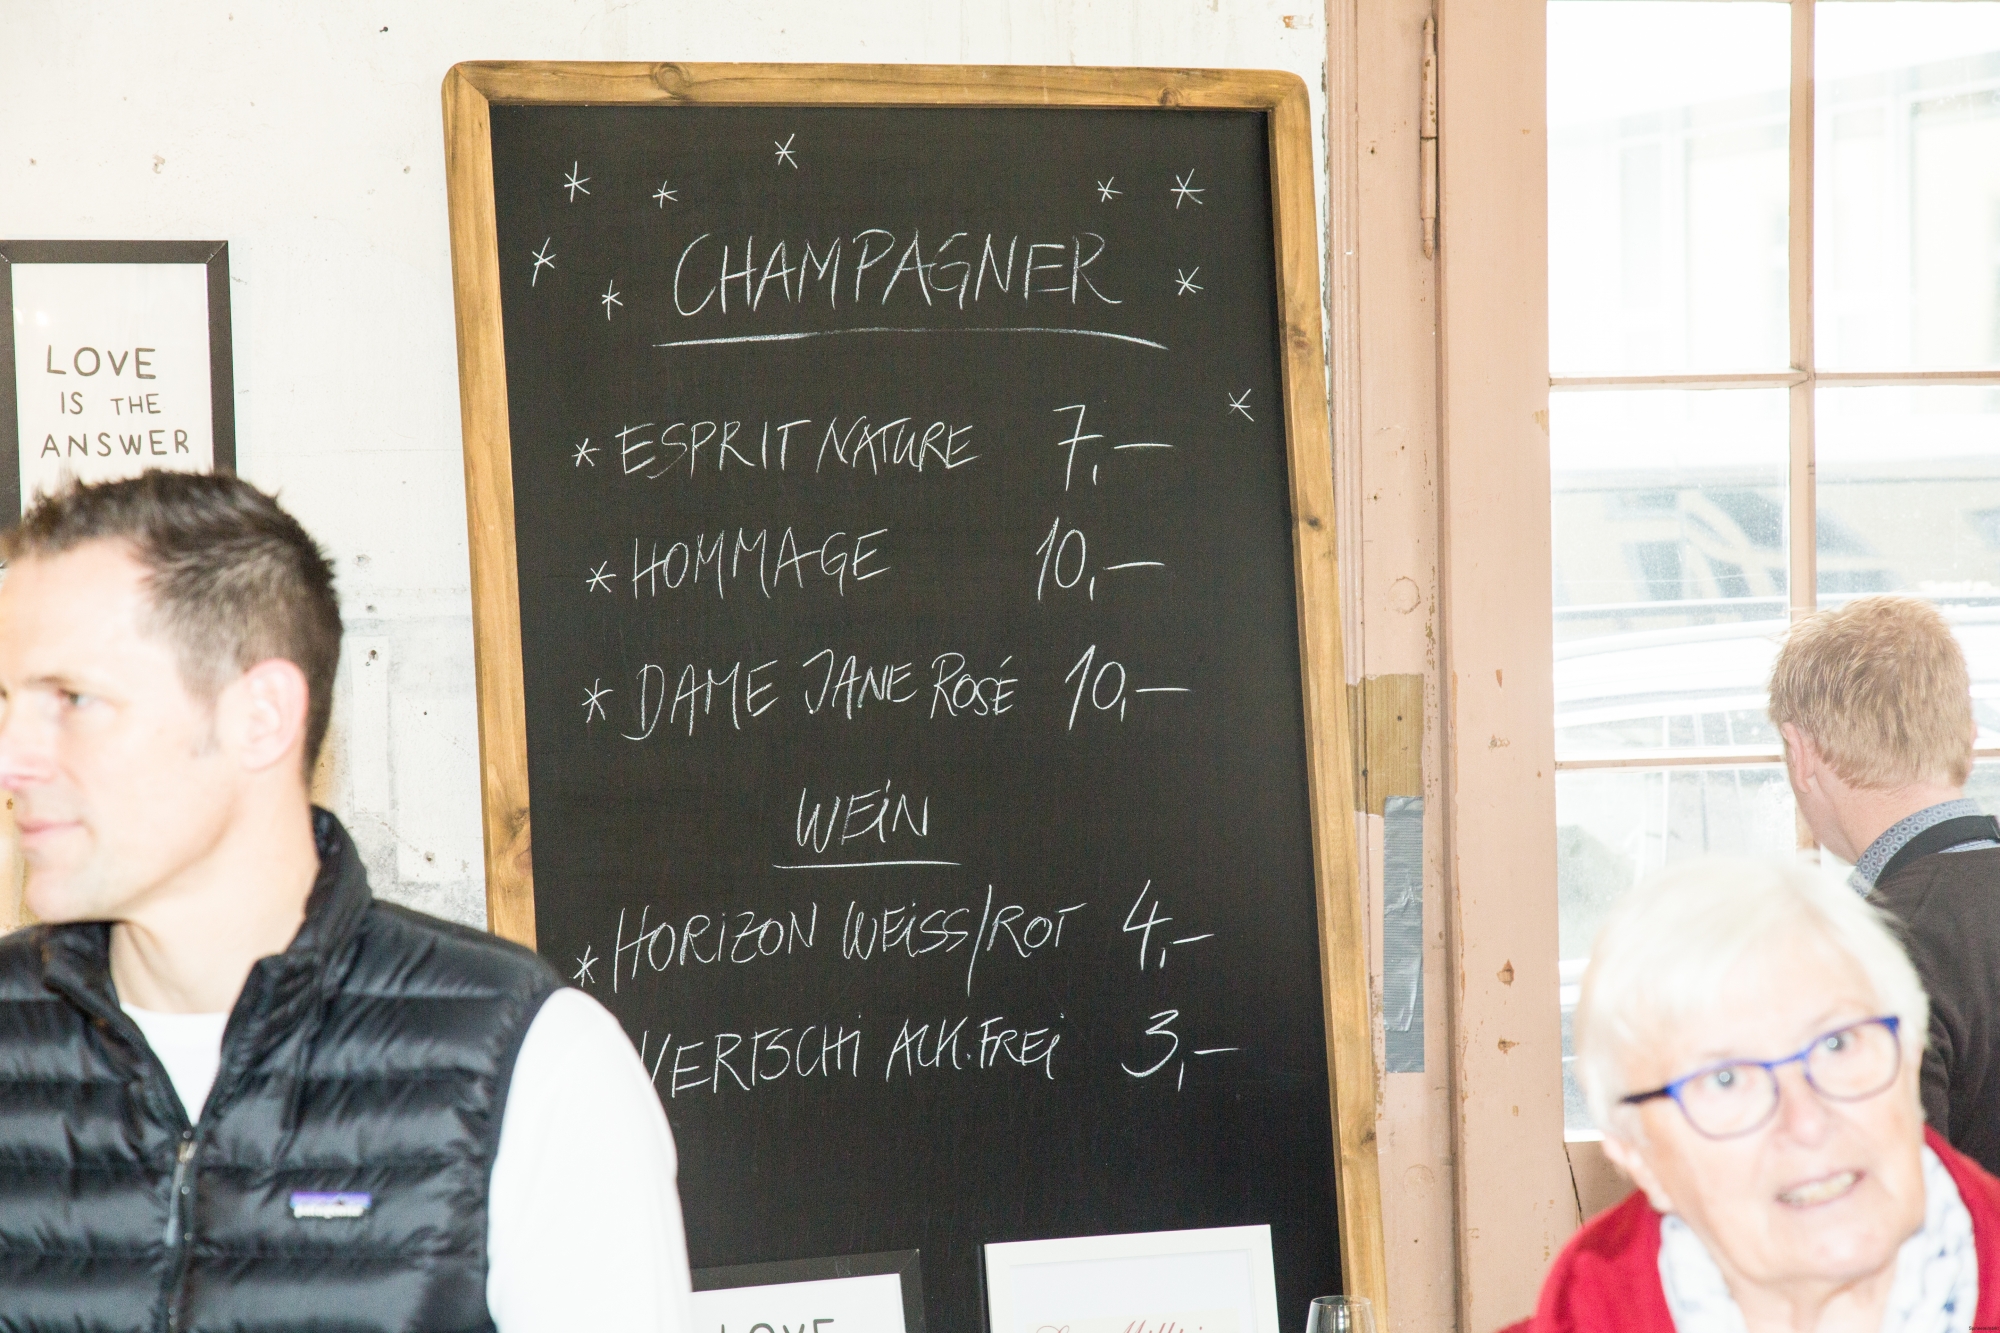 CHAMPAGNER
* ESPRIT NATURE 7,—
* HOMMAGE 10,—
* DAME JANE ROSÉ 10,—
WEIN
* HORIZON WEISS/ROT 4,—
VERTSCHI ALK.FREI 3,—
LOVE
IS THE
ANSWER
patagonia
LOVE